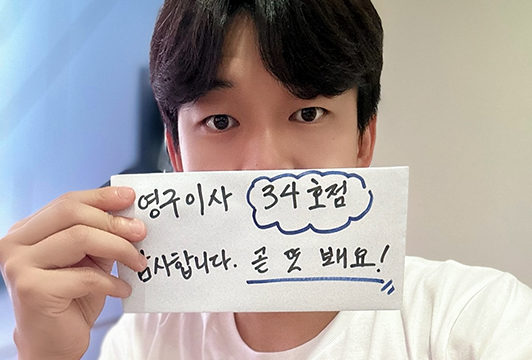 영구이사 34호점
감사합니다. 곧 또 봬요!